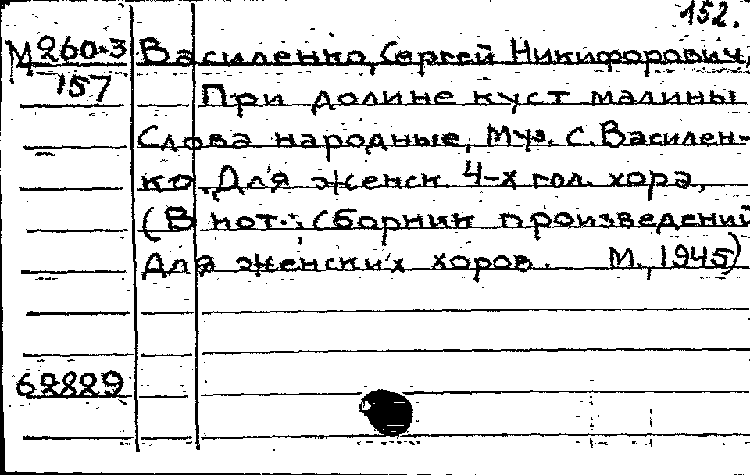 152.
М 260-3 Василенко, Сергей Никифорович,
157 При долине куст малины
Слова народные, муз. С. Василен-
ко. Для женск. 4-х гол. хора,
(В нот.: Сборник произведений
для женских хоров. М., 1945)
62829